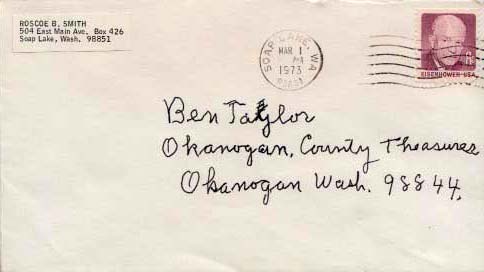 ROSCOE B. SMITH
504 East Main Ave. Box 426
Soap Lake, Wash. 98851
SOAP LAKE, WA
MAR 1
PM
1973
EISENHOWER·USA
Ben Taylor
Okanogan, County Theasures
Okanogan Wash. 98844,